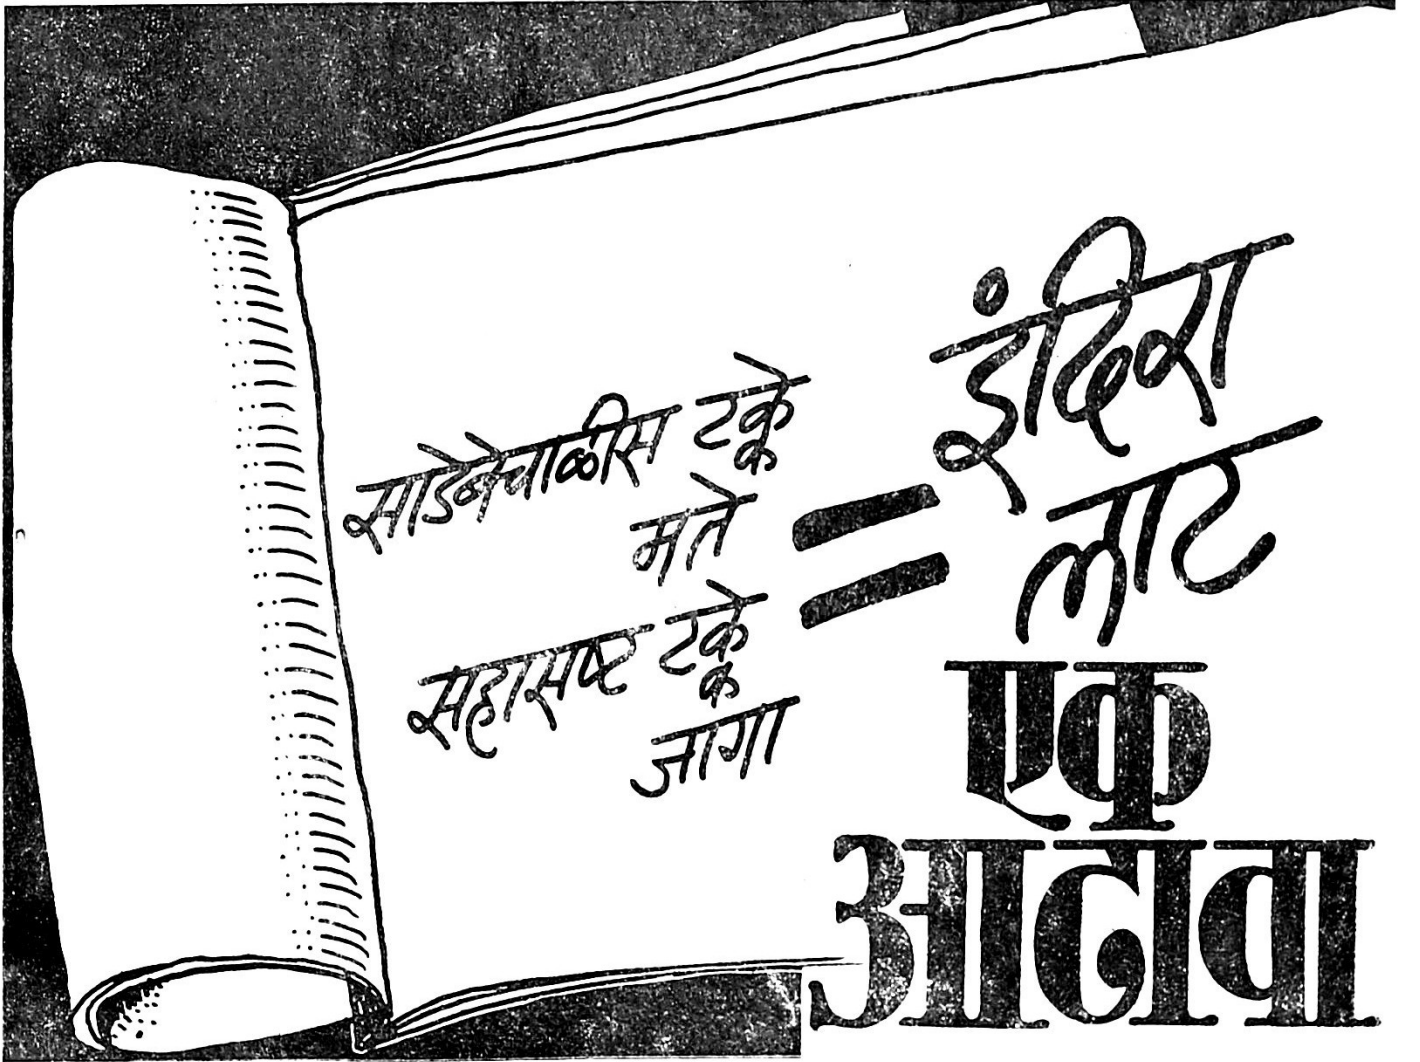 साडेबेचाळीस टक्के
मते
सहासष्ट टक्के
जागा
=
इंदिरा
लाट
एक
आढावा